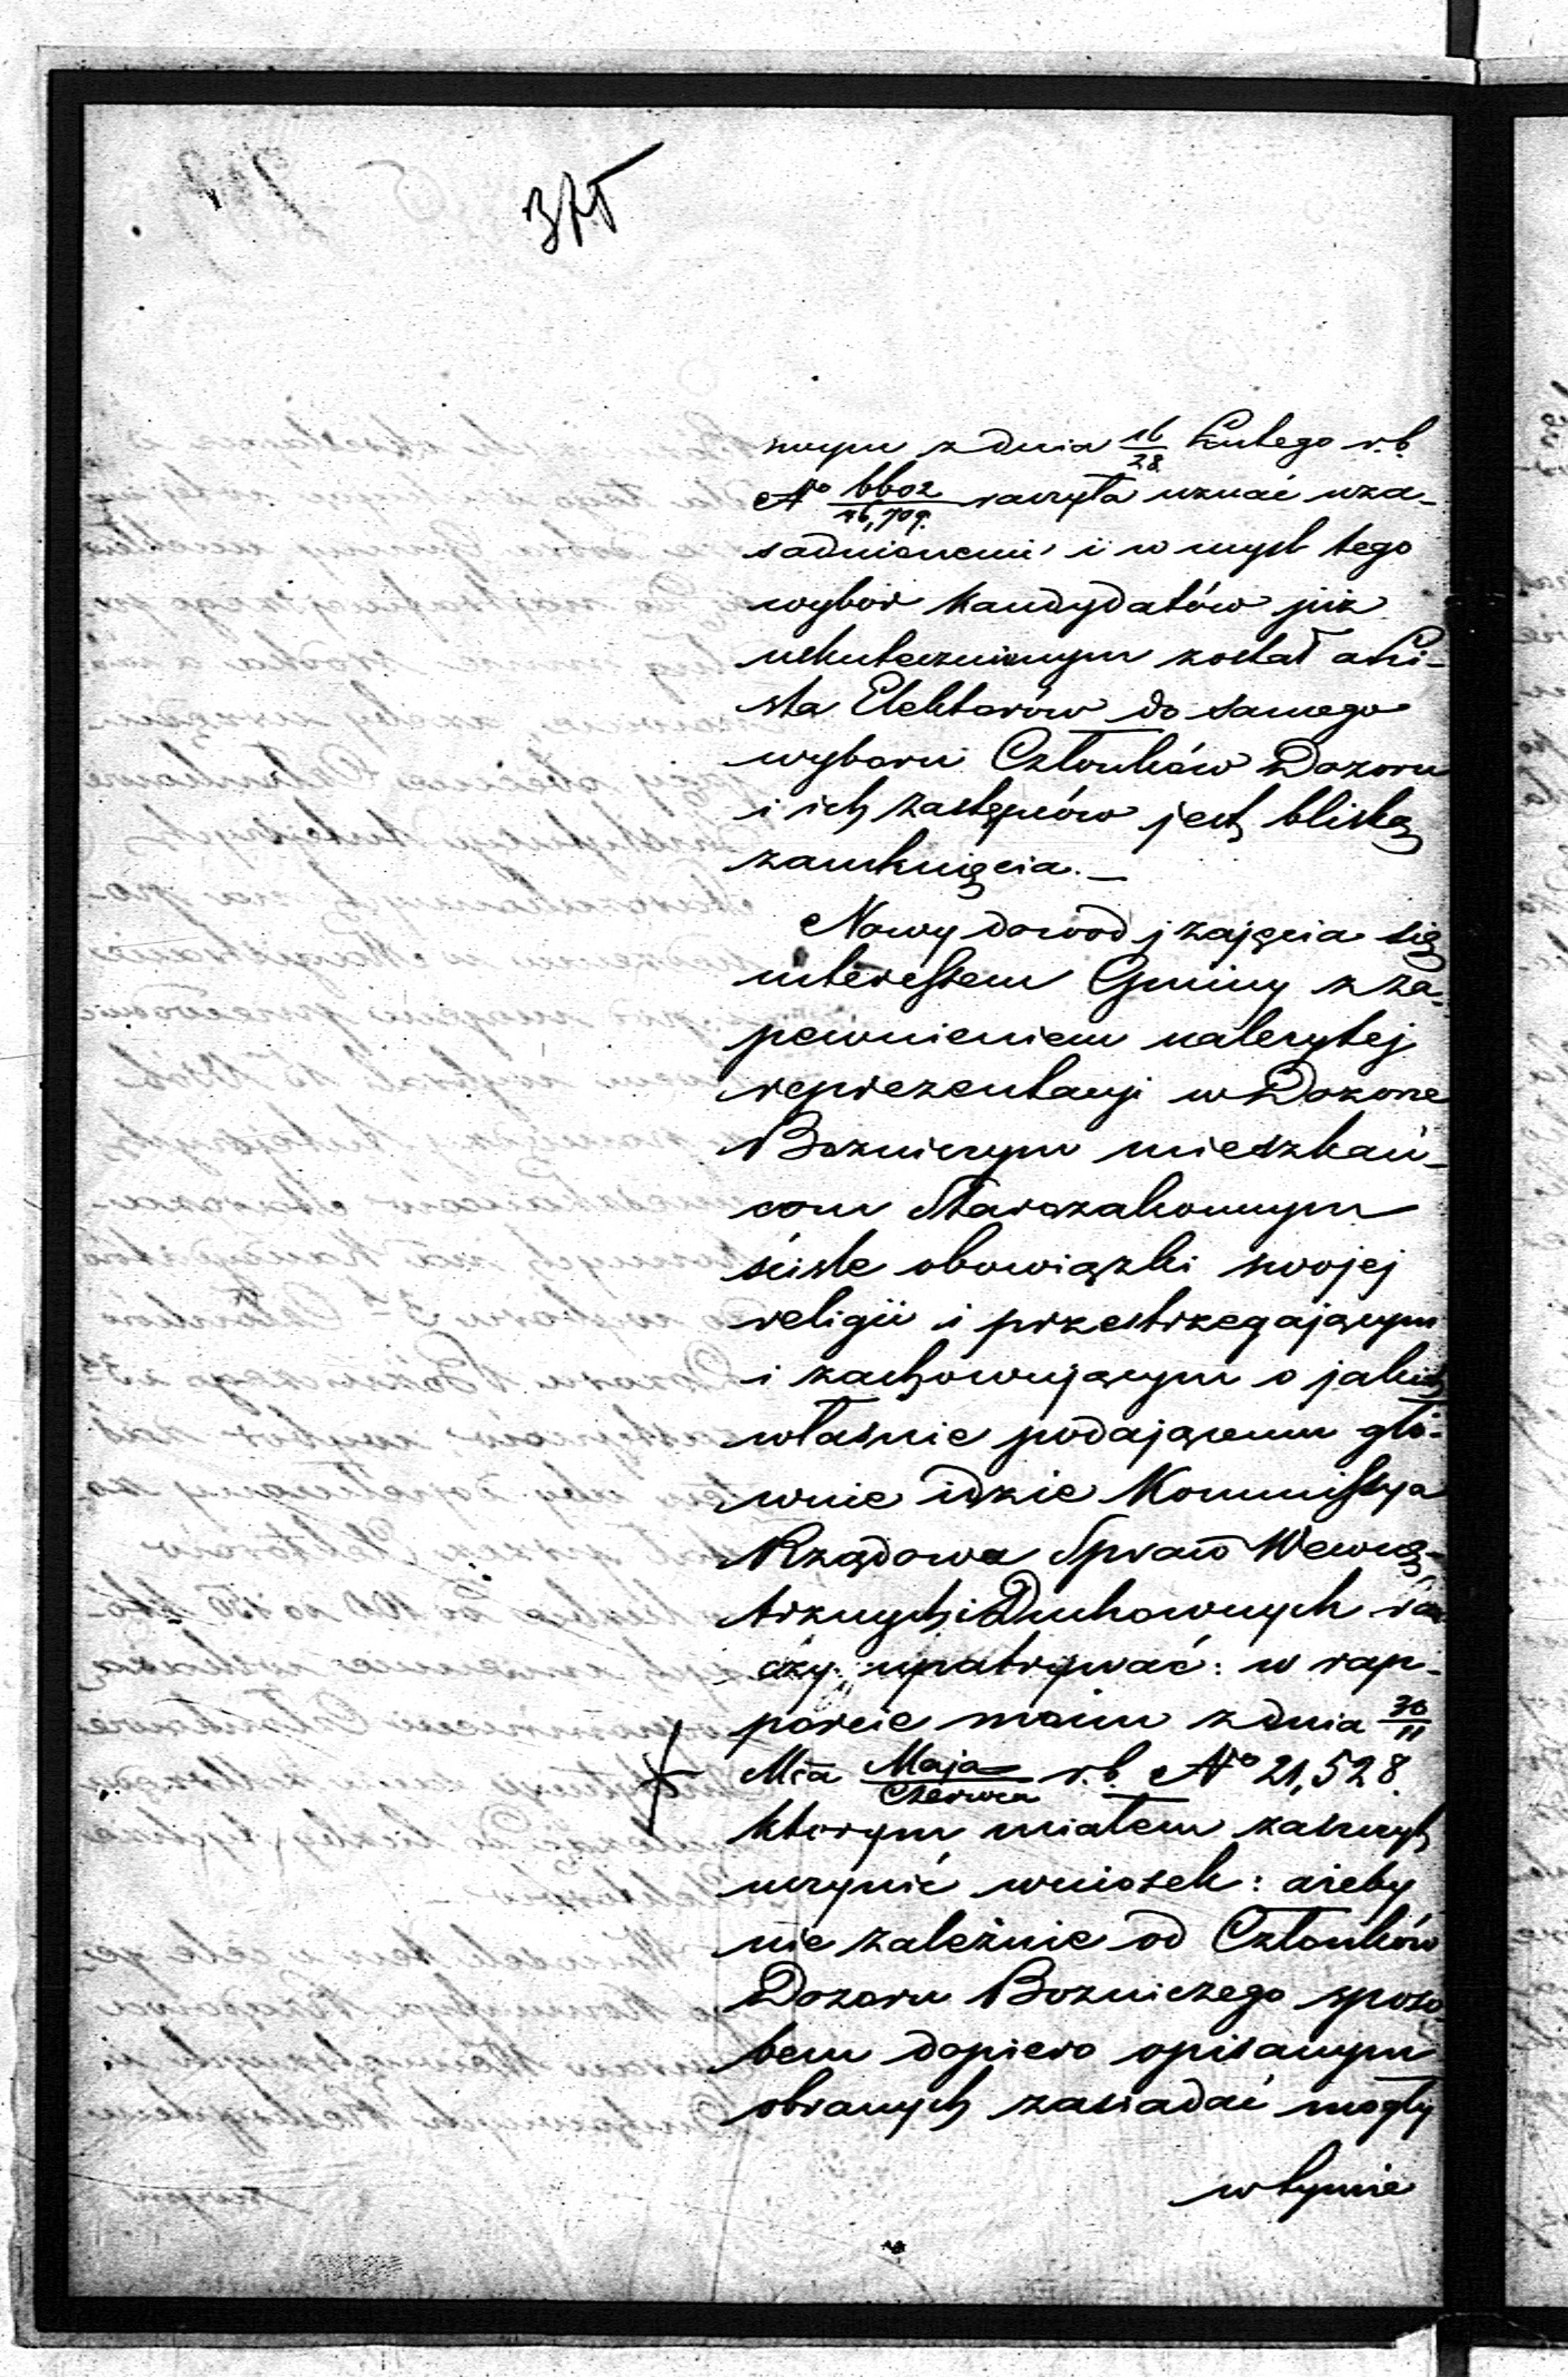 375
swym z dnia 16/28 Lutego r.b.
No 6602/16,709. raczyła uznać uza-
sadnionemi i w myśl tego
wybór Kandydatów już
uskutecznionym został a Li-
sta Elektorów do samego
wyboru Członków Dozoru
i ich zastępców jest bliską
zamknięcia. —
Nowy dowod zajęcia się
interessem Gminy z za-
pewnieniem należytej
reprezentacyi w Dozorze
Bozniczym mieszkań-
com Starozakonnym
ścisle obowiązki swojej
religii i przestrzegającym
i zachowującym o jakich
własnie podającemu głó-
wnie idzie Kommissya
Rządowa Spraw Wewnę-
trznych i Duchownych ra
czy upatrywać: w rap-
porcie moim z dnia 30/11
Mca Maja/Czerwca r.b. No 21,528
ktorym miałem zaszczyt
uczynić wniosek: ażeby
nie zależnie od Członków
Dozoru Bozniczego sposo
bem dopiero opisanym
obranych zasiadać mogły
w tymże